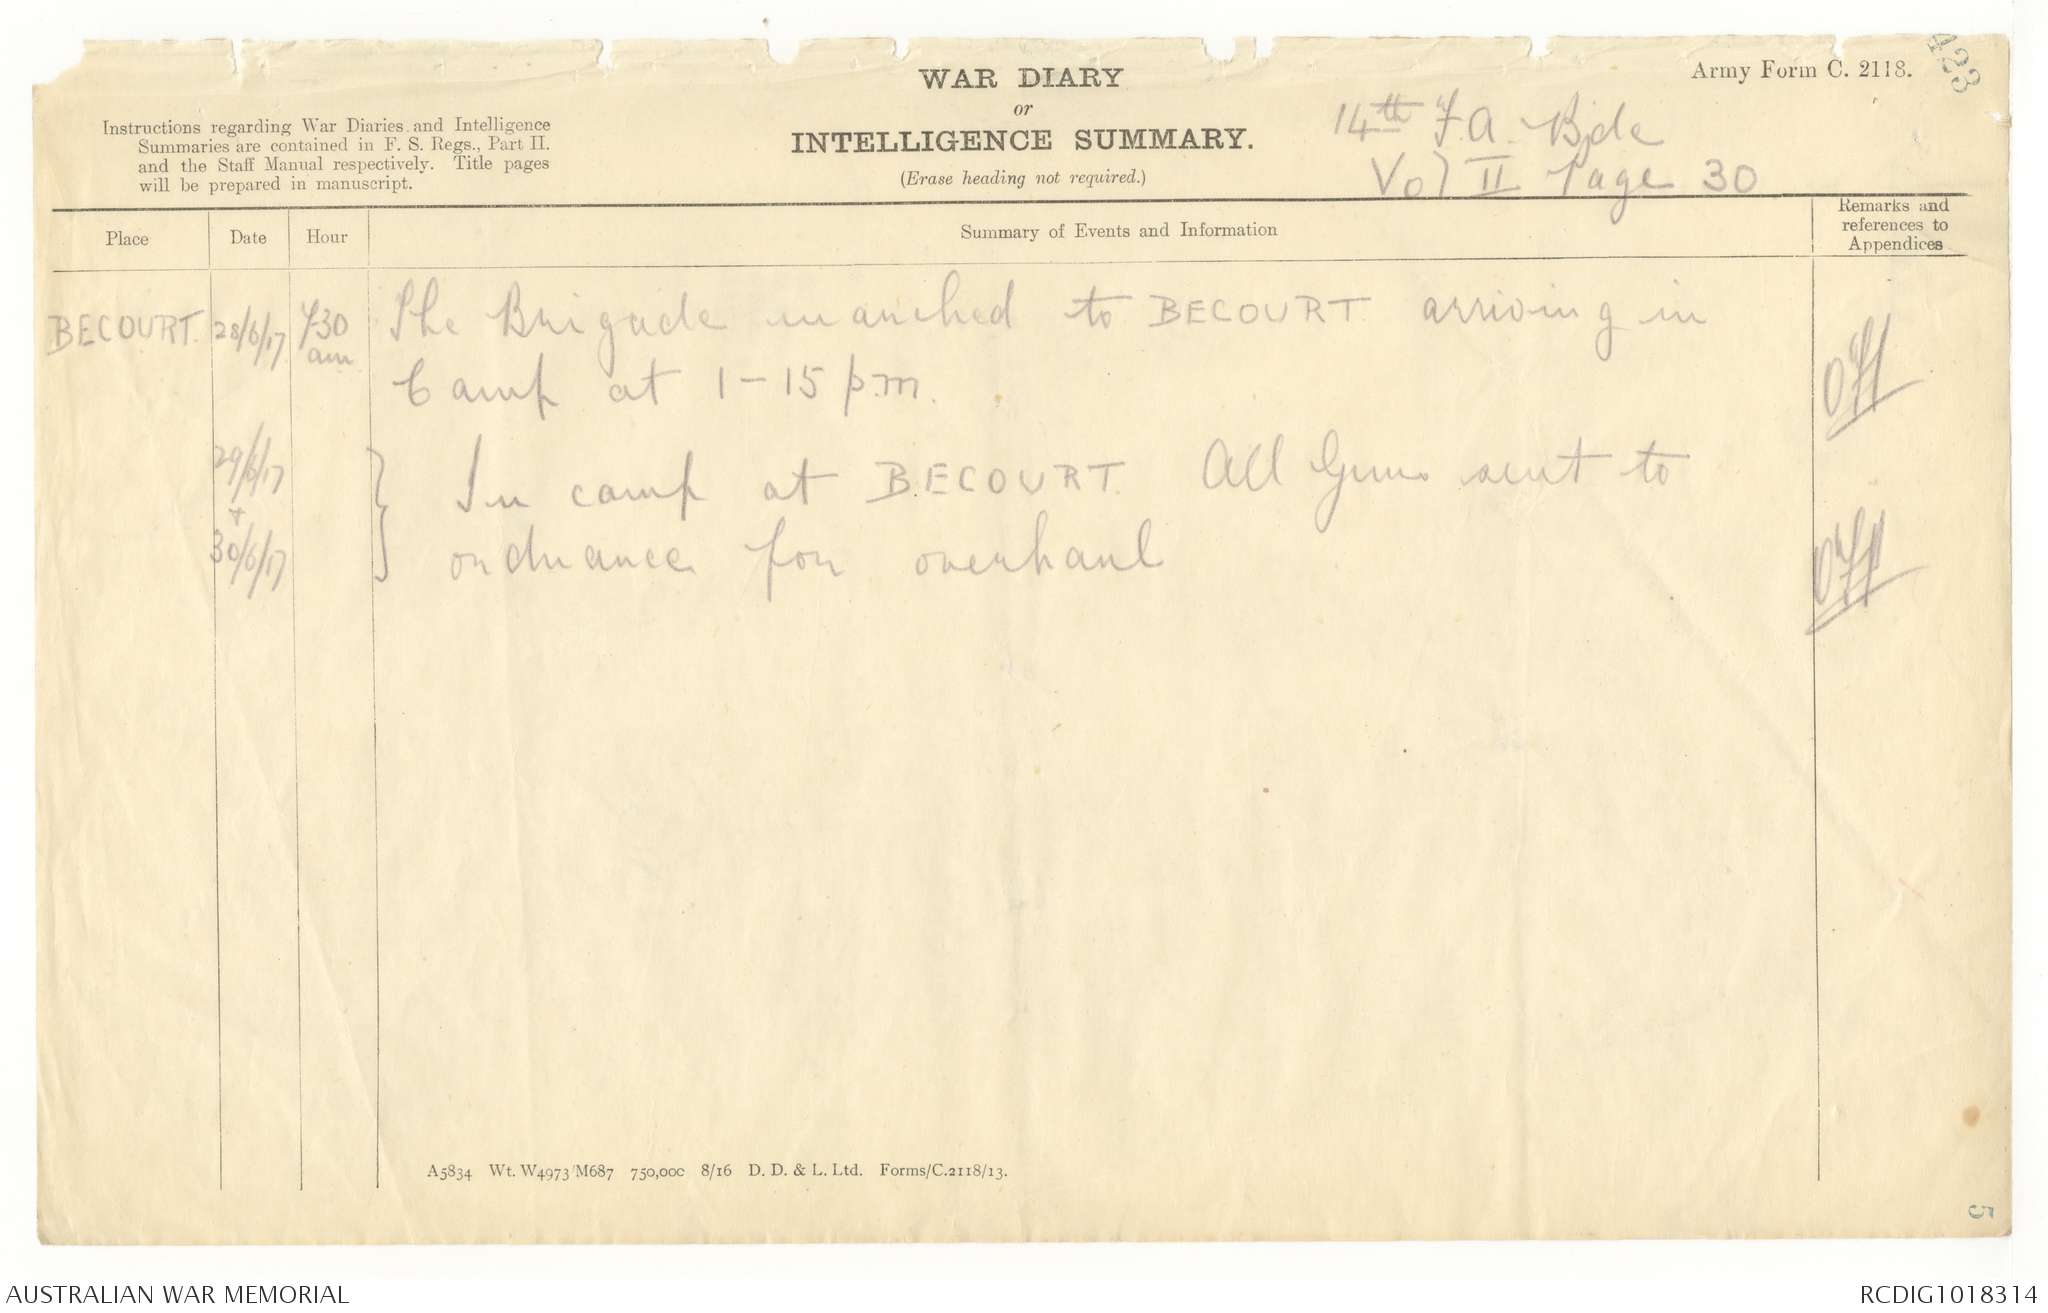 WAR DIARY
or
INTELLIGENCE SUMMARY.
(Erase heading not required.)
Army Form C. 2118.
423
Instructions regarding War Diaries and Intelligence
Summaries are contained in F. S. Regs., Part II.
and the Staff Manual respectively. Title pages
will be prepared in manuscript.
14th F.A. Bde
Vol II Page 30
Place Date Hour Summary of Events and Information Remarks and
references to
Appendices
BECOURT. 28/6/17 7-30 The Brigade marched to BECOURT arriving in
am
Camp at 1-15 p.m.
29/6/17
+ In camp at BECOURT. All Guns sent to
30/6/17 ordnance for overhaul
A5834 Wt. W4973/M687 750,000 8/16 D. D. & L. Ltd. Forms/C.2118/13.
5
AUSTRALIAN WAR MEMORIAL
RCDIG1018314